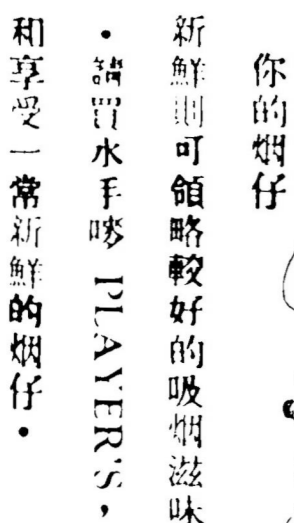 你的烟仔
新鮮則可領略較好的吸烟滋味
•請買水手嘜 PLAYER'S，
和享受一常新鮮的烟仔•